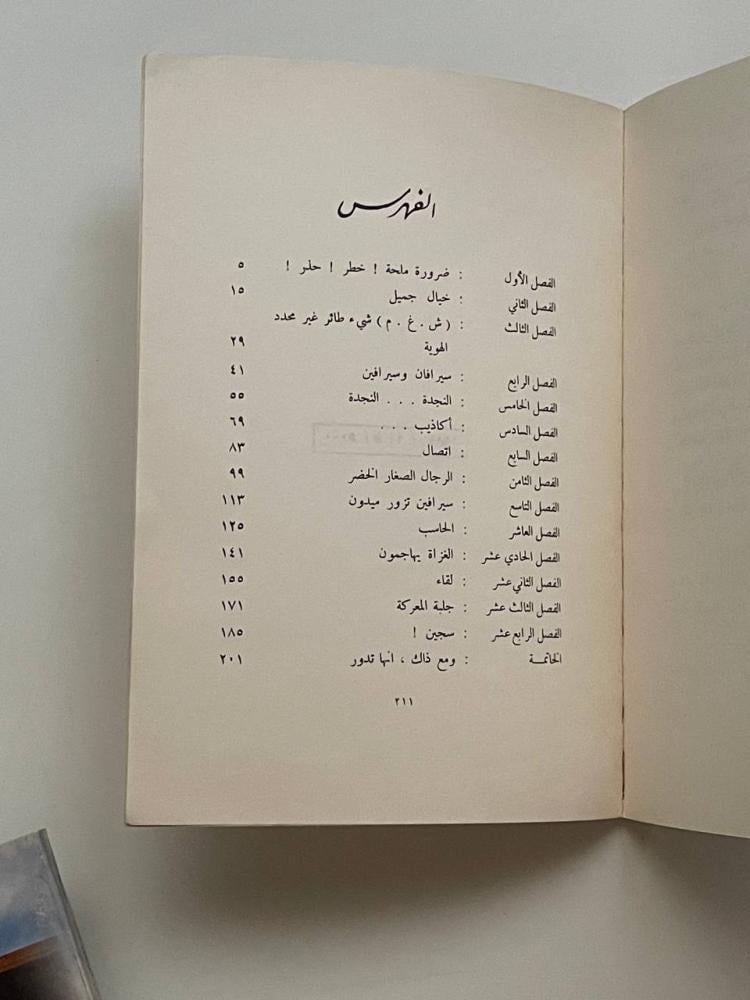 الفهرس
الفصل الأول : ضرورة ملحة ! خطر ! حذر ! ٥
الفصل الثاني : خيال جميل ١٥
الفصل الثالث : ( ش . غ . م ) شيء طائر غير محدد
الهوية ٢٩
الفصل الرابع : سيرافان وسيرافين ٤١
الفصل الخامس : النجدة . . . النجدة ٥٥
الفصل السادس : أكاذيب . . . ٦٩
الفصل السابع : اتصال ٨٣
الفصل الثامن : الرجال الصغار الخضر ٩٩
الفصل التاسع : سيرافين تزور ميدون ١١٣
الفصل العاشر : الحاسب ١٢٥
الفصل الحادي عشر : الغزاة يهاجمون ١٤١
الفصل الثاني عشر : لقاء ١٥٥
الفصل الثالث عشر : جلبة المعركة ١٧١
الفصل الرابع عشر : سجين ! ١٨٥
الخاتمـــة : ومع ذاك ، انها تدور ٢٠١
٢١١